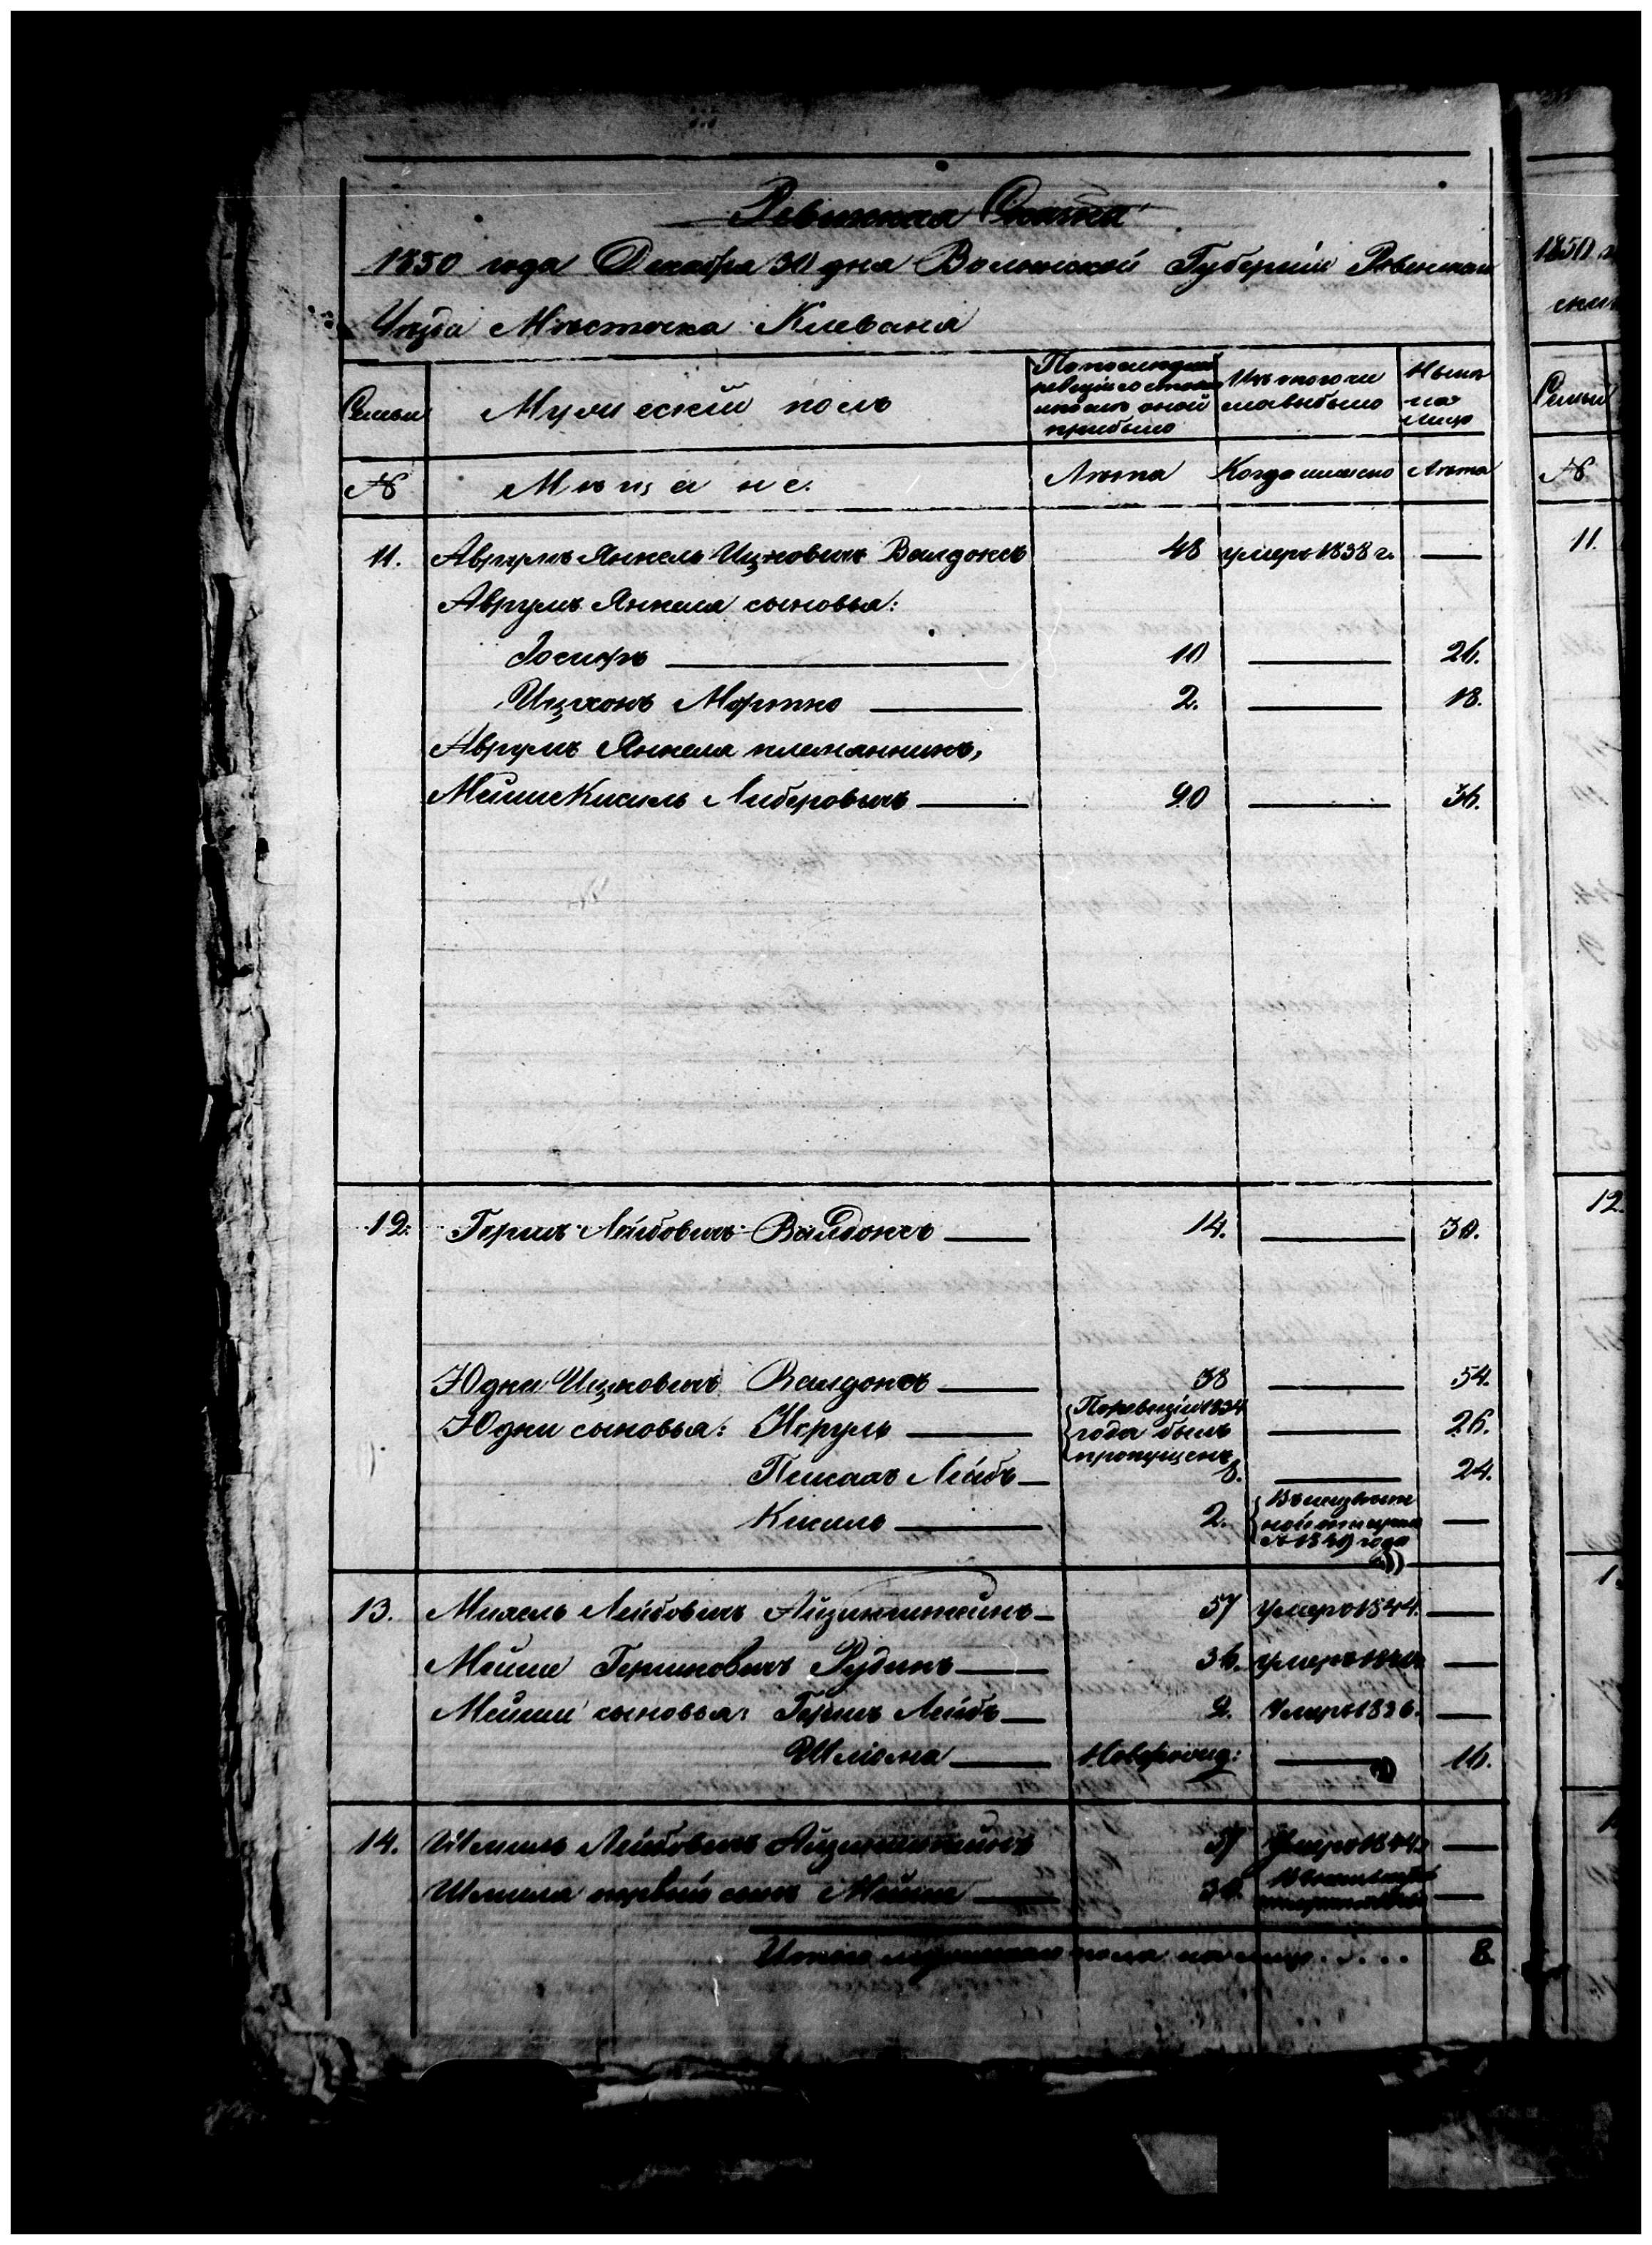 Ревизская Сказка
1850 года Декабря 30 дня Волынской Губернии Ровенскаго
Уезда Местечка Клеваня
Семьи
Мужеский полъ
По последней ревизии состояло и после оной прибыло
Изъ того числа выбыло
Ныне на лицо
№
Мещане.
Лета
Когда именно
Лета
11. Аврумъ Янкель Ицковичъ Валдонсъ 48 умеръ 1838 г. —
Аврумъ Янкеля сыновья:
Іосифъ — 10 — 26.
Ицхокъ Мортко — 2. — 18.
Аврумъ Янкеля племянникъ,
Мейше Кисиль Либеровичъ — 20 — 36.
12. Гершъ Лейбовичъ Валдонсъ — 14. — 30.
Юдка Ицковичъ Валдонсъ — 38 — 54.
Юдки сыновья: Исруль — По ревизіи 1834 года былъ пропущенъ — 26.
Пинхасъ Лейбъ — 8. — 24.
Кисиль — 2. 1849 года —
13. Михель Лейбовичъ Айзинштейнъ — 57 умеръ 1844. —
Мейше Гершковичъ Рудикъ — 36. умеръ —
Мейши сыновья: Гершъ Лейбъ — 2. Умеръ 1836. —
Шліома — Новорожд: — 16.
14. Шмиль Лейбовичъ Айзинштейнъ 57 Умеръ 1844 —
Шмиля первый сынъ Мейше — —
Итого мужескаго пола на лицо . . . . 8.
1850
Семьи
№
11.
12.